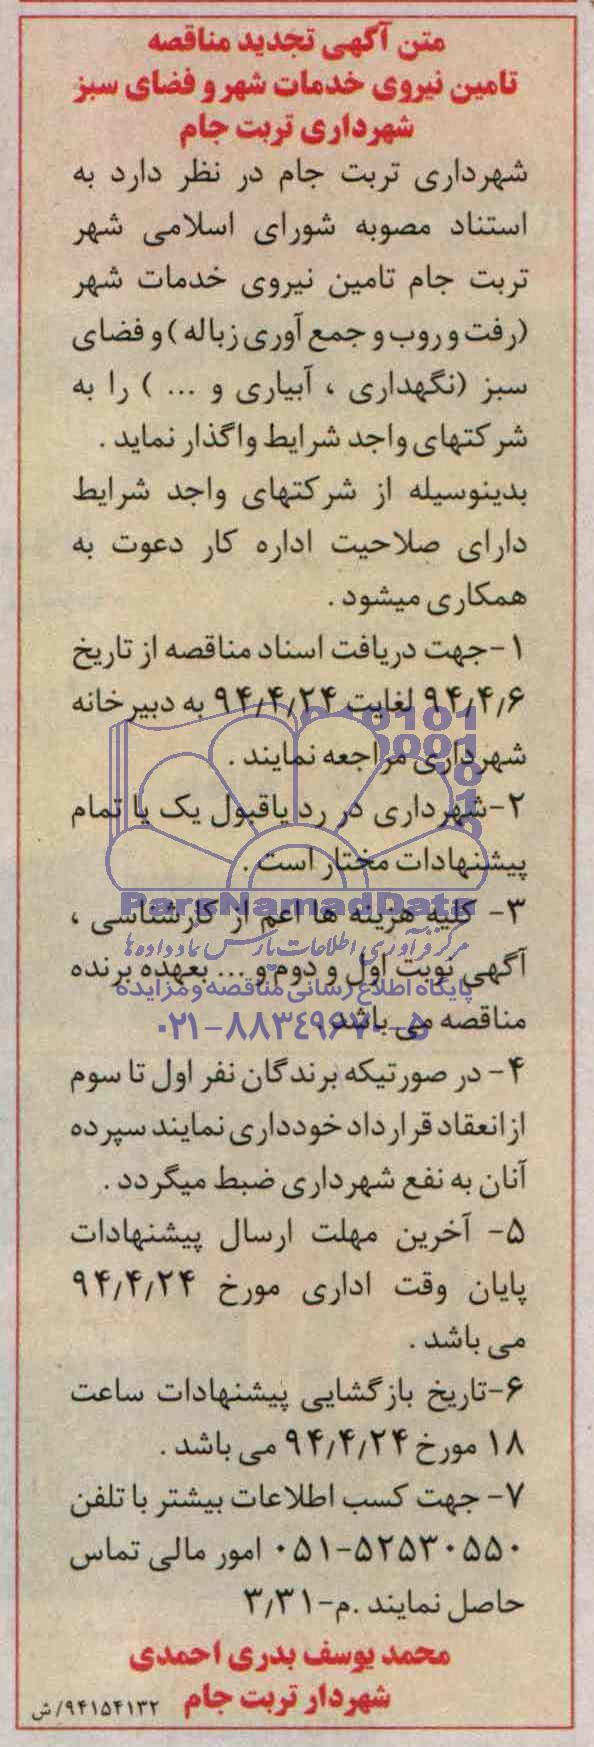 متن آگهی تجدید مناقصه
تامین نیروی خدمات شهر و فضای سبز
شهرداری تربت جام
شهرداری تربت جام در نظر دارد به
استناد مصوبه شورای اسلامی شهر
تربت جام تامین نیروی خدمات شهر
(رفت و روب و جمع آوری زباله) و فضای
سبز (نگهداری ، آبیاری و ... ) را به
شرکتهای واجد شرایط واگذار نماید .
بدینوسیله از شرکتهای واجد شرایط
دارای صلاحیت اداره کار دعوت به
همکاری میشود .
۱-جهت دریافت اسناد مناقصه از تاریخ
۹۴/۴/۶ لغایت ۹۴/۴/۲۴ به دبیرخانه
شهرداری مراجعه نمایند .
۲-شهرداری در رد یاقبول یک یا تمام
پیشنهادات مختار است .
ParsNamadData
۳- کلیه هزینه ها اعم از کارشناسی ،
مرکز فرآوری اطلاعات پارس نماد داده ها
آگهی نوبت اول و دوم و ... بعهده برنده
پایگاه اطلاع رسانی مناقصه و مزایده
مناقصه می باشد .
۰۲۱-۸۸۳۴۹۶۷۰-۵
۴- در صورتیکه برندگان نفر اول تا سوم
از انعقاد قرارداد خودداری نمایند سپرده
آنان به نفع شهرداری ضبط میگردد .
۵- آخرین مهلت ارسال پیشنهادات
پایان وقت اداری مورخ ۹۴/۴/۲۴
می باشد .
۶-تاریخ بازگشایی پیشنهادات ساعت
۱۸ مورخ ۹۴/۴/۲۴ می باشد .
۷- جهت کسب اطلاعات بیشتر با تلفن
۰۵۱-۵۲۵۳۰۵۵۰ امور مالی تماس
حاصل نمایند .م-۳/۳۱
محمد یوسف بدری احمدی
شهردار تربت جام
۹۴۱۵۴۱۳۲/ش